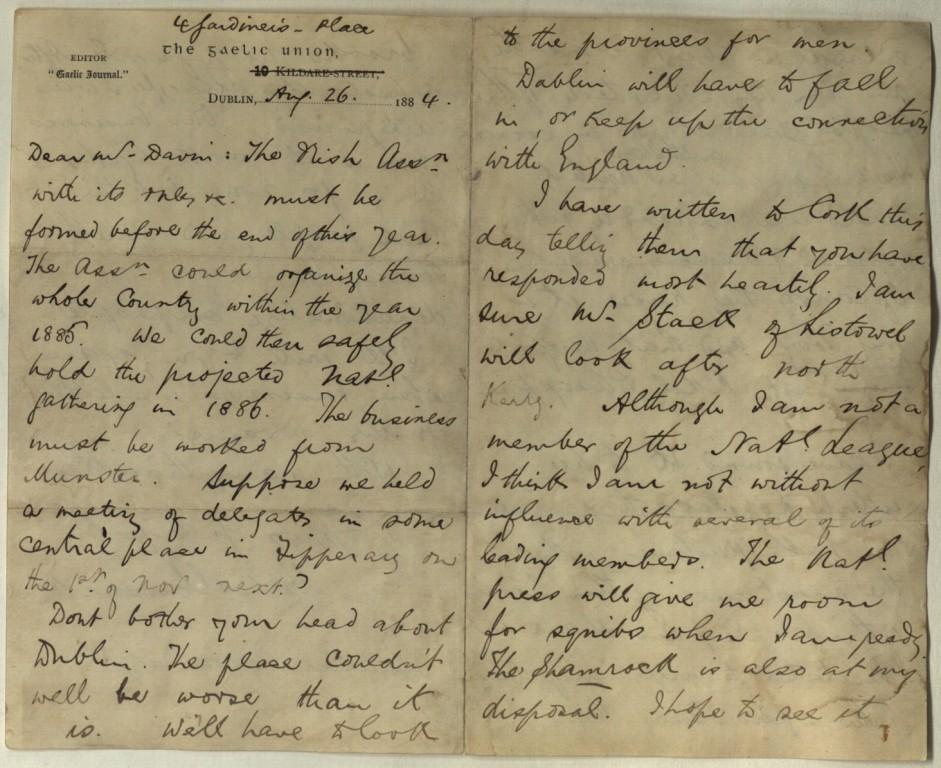 4 Gardiner's - Place
EDITOR
"Gaelic Journal."
The Gaelic Union,
10 KILDARE-STREET,
DUBLIN, Aug. 26. 1884.
Dear Mr Davin: The Irish Assn
with its rules &c. must be
formed before the end of this year.
The Assn could organize the
whole Country within the year
1885. We could then safely
hold the projected Natl
gathering in 1886. The business
must be worked from
Munster. Suppose we held
a meeting of delegates in some
central place in Tipperary on
the 1st of Nov next?
Dont bother your head about
Dublin. The place couldn't
well be worse than it
is. We'll have to look
to the provinces for men.
Dublin will have to fall
in, or keep up the connection
with England.
I have written to Cork this
day telling them that you have
responded most heartily. I am
sure Mr Stack of Listowel
will look after north
Kerry. Although I am not a
member of the Natl League
I think I am not without
influence with several of its
leading members. The Natl
press will give me room
for squibs when I am ready.
The Shamrock is also at my
disposal. I hope to see it